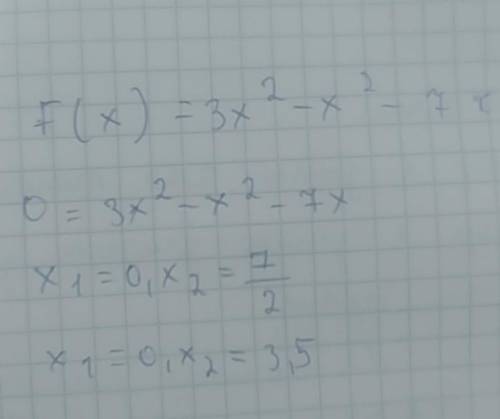 F(x) = 3x² - x² - 7x
0 = 3x² - x² - 7x
x₁ = 0, x₂ = 7/2
x₁ = 0, x₂ = 3,5